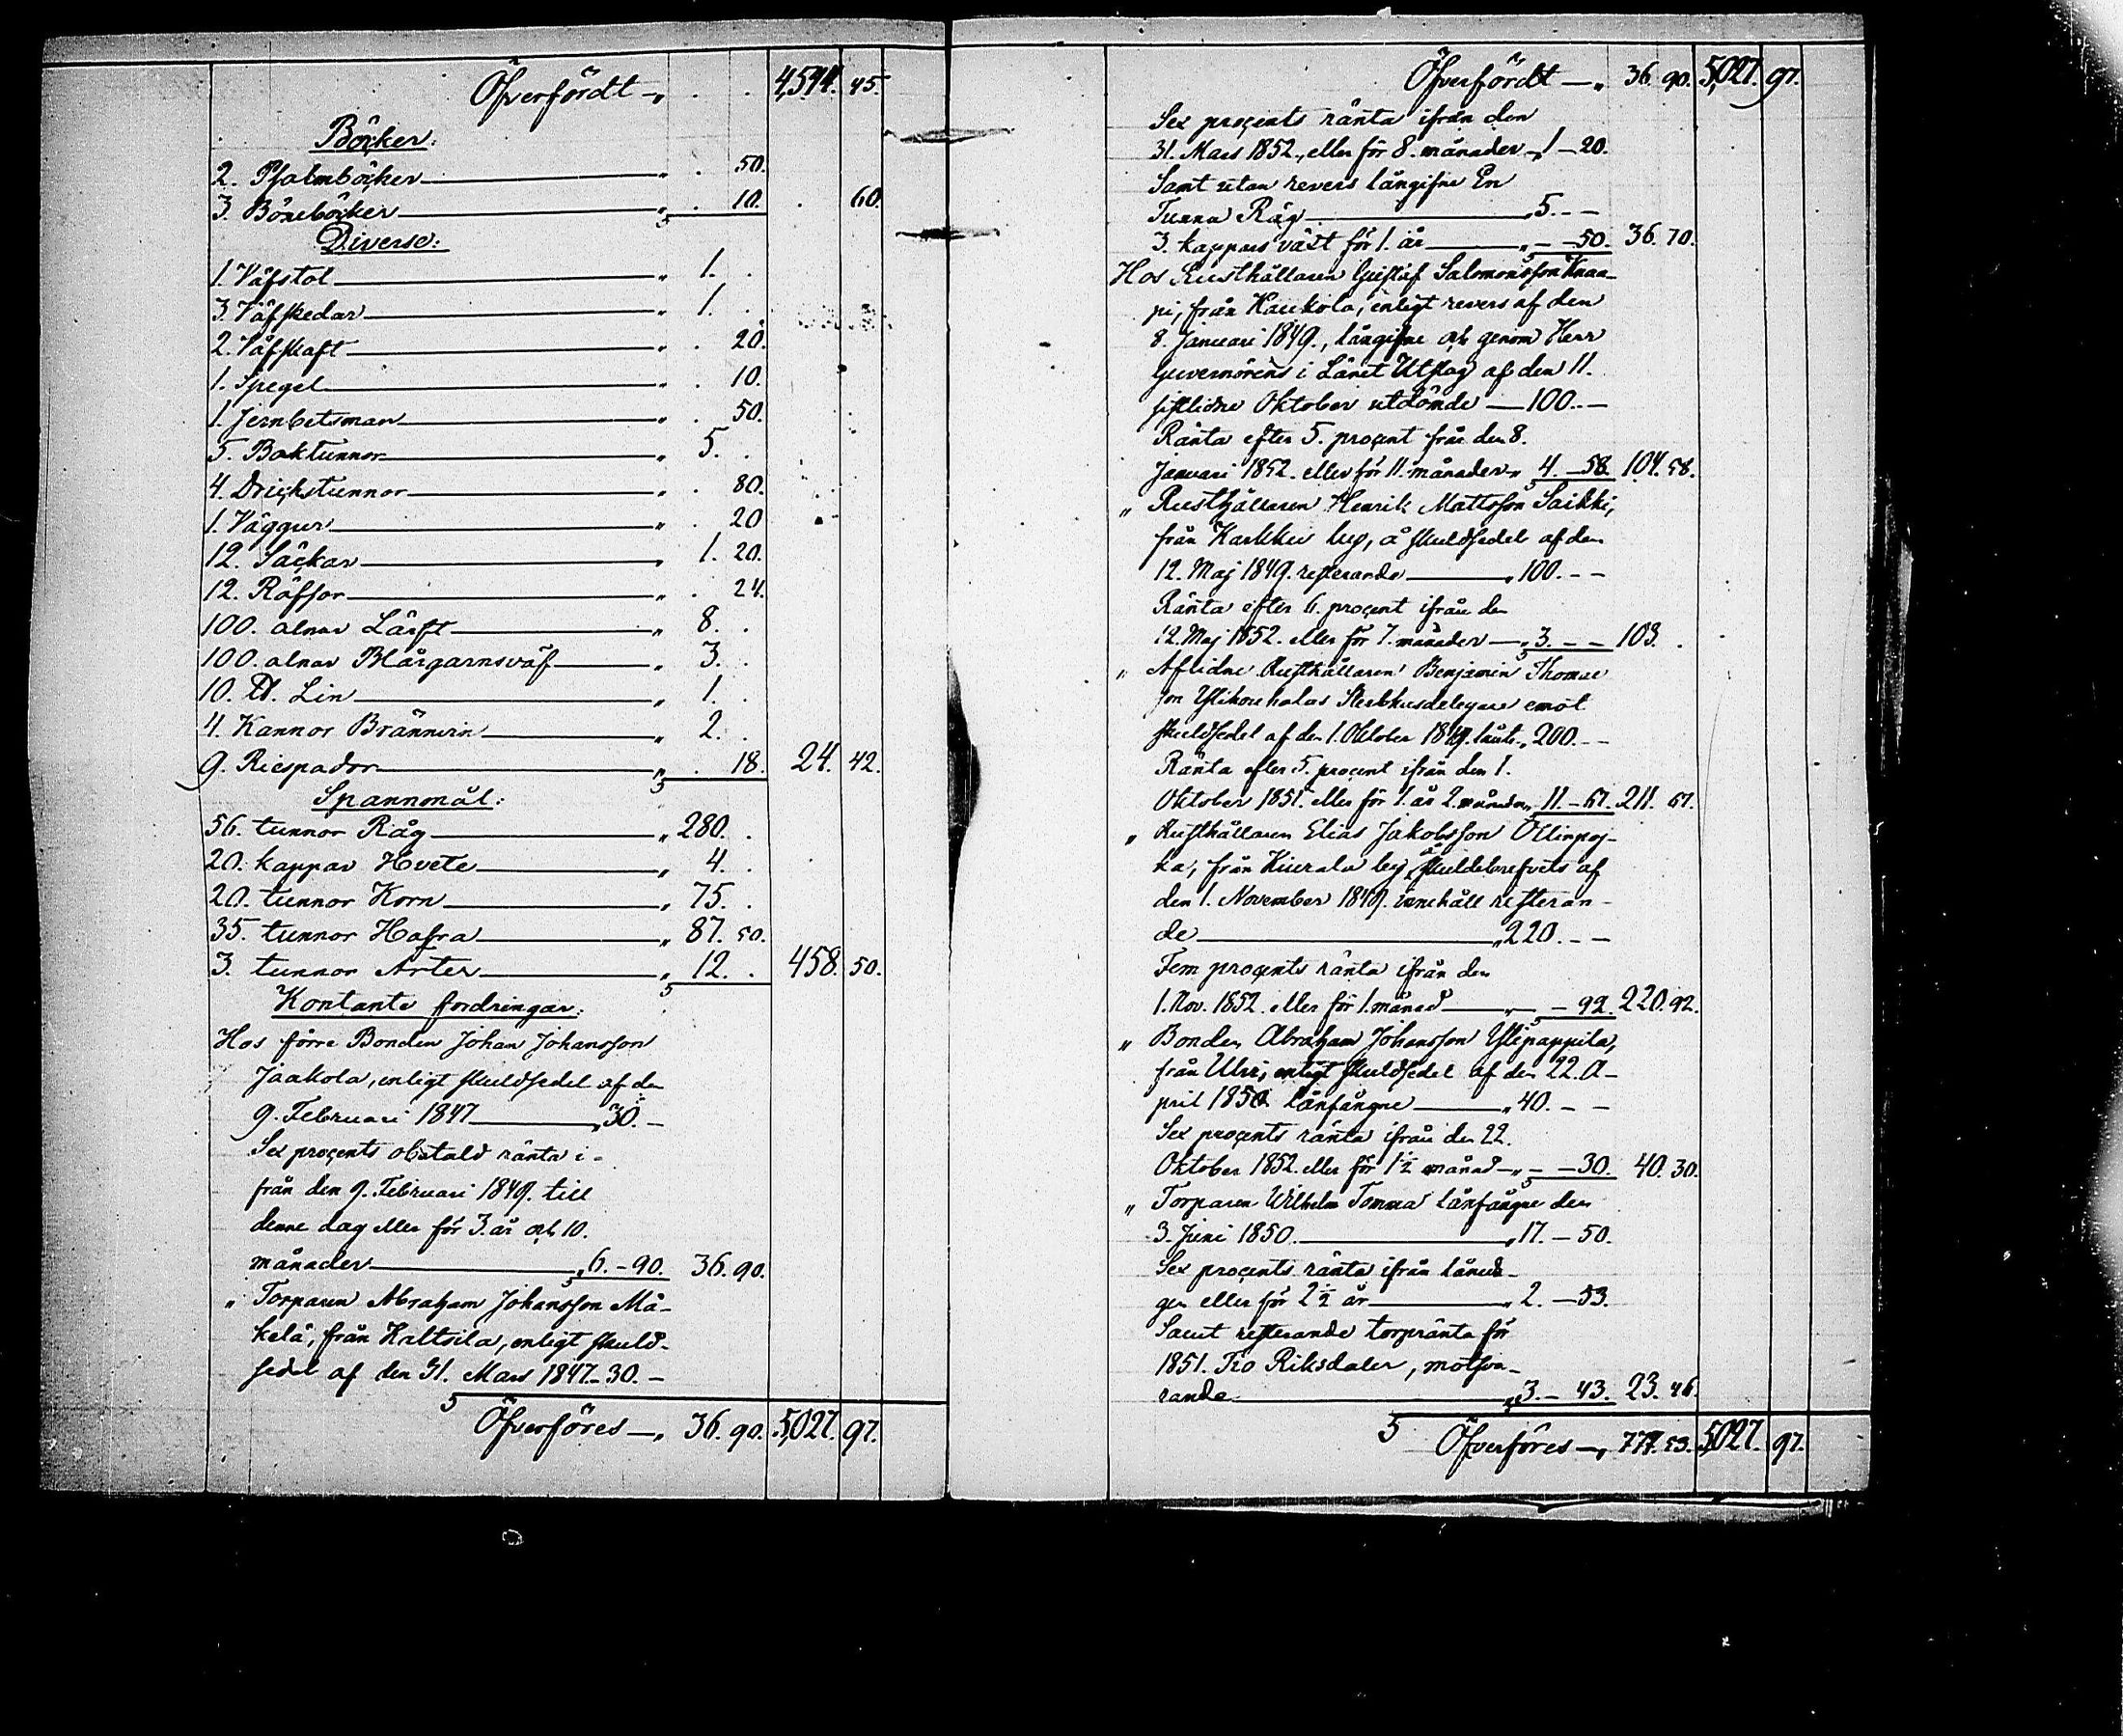 Öfverfördt — „ . . 4,544. 45.
Böcker:
2. Psalmböcker — „ . 50.
3. Böneböcker — „ . 10. . 60.
Diverse:
1. Väfstol — „ 1. .
3. Väfskedar — „ 1. .
2. Väfskaft — „ . 20.
1. Spegel — „ . 10.
1. Jernbetsman — „ . 50.
5. Baktunnor — „ 5. .
4. Drickstunnor — „ . 80.
1. Väggur — „ . 20
12. Säckar — „ 1. 20.
12. Räfsor — „ . 24.
100. alnar Lärft — „ 8. .
100. alnar Blårgarnsväf — „ 3. .
10. ℔. Lin — „ 1. .
4. Kannor Brännvin — „ 2. .
9. Riespador — „ . 18. 24. 42.
Spannmål:
56. tunnor Råg — „ 280. .
20. kappar Hvete — „ 4. .
20. tunnor Korn — „ 75. .
35. tunnor Hafra — „ 87. 50.
3. tunnor Ärter — „ 12. . 458. 50.
Kontante fordringar:
Hos förre Bonden Johan Johansson
Jaakola, enligt skuldsedel af den
9. Februari 1847 — „ 30. –
Sex procents obetald ränta i-
från den 9. Februari 1849. till
denne dag eller för 3. år och 10.
månader — „ 6. – 90. 36. 90.
„ Torparen Abraham Johansson Mä-
kelä, från Kaltsila, enligt skuld-
sedel af den 31. Mars 1847. – 30. –
Öfverföres — „ 36. 90. 5,027. 97.
Öfverfördt — „ 36. 90. 5,027. 97.
Sex procents ränta ifrån den
31. Mars 1852., eller för 8. månader „ 1 – 20.
Samt utan revers långifne En
Tunna Råg — „ 5. – –
3. kappars växt för 1. år — „ – – 50. 36. 70.
Hos Rusthållaren Gustaf Salomonsson Knaa-
pi, från Haukola, enligt revers af den
8. Januari 1849., långifne och genom Herr
Guvernörens i Länet Utslag af den 11.
sistlidne Oktober utdömde — 100. –
Ränta efter 5. procent från den 8.
Januari 1852. eller för 11. månader „ 4. – 58. 104. 58.
„ Rusthållaren Henrik Mattsson Saikki,
från Karkku by, å skuldsedel af den
12. Maj 1849. resterande — „ 100. – –
Ränta efter 6. procent ifrån den
12. Maj 1852. eller för 7. månader — „ 3. – – 103. .
„ Aflidne Rusthållaren Benjamin Thomae
son Sterbhusdelegare emot
skuldsedel af den 1. Oktober 1849. „ 200. –
Ränta efter 5. procent ifrån den 1.
Oktober 1851. eller för 1. år 2. månader „ 11. – 67. 211. 67.
„ Rusthållaren Elias Jakobsson Ollinpoj-
ka, från Kiurala by, å skuldebrefvets af
den 1. November 1849. innehåll resteran-
de — „ 220. – –
Fem procents ränta ifrån den
1. Nov. 1852. eller för 1. månad — „ – – 92. 220. 92.
„ Bonden Abraham Johansson Ylipappila,
från Uhri, enligt skuldsedel af den 22. A-
pril 1850. lånfångne — „ 40. – –
Sex procents ränta ifrån den 22.
Oktober 1852. eller för 1½ månad — „ – – 30. 40. 30.
„ Torparen Wilhelm Tomma lånfångne den
3. Juni 1850. — „ 17. – 50.
Sex procents ränta ifrån låneda-
gen eller för 2½ år — „ 2. – 53.
Samt resterande torpränta för
1851. Tio Riksdaler, motsva-
rande — „ 3. – 43. 23. 46.
Öfverföres — „ 777. 53. 5,027. 97.